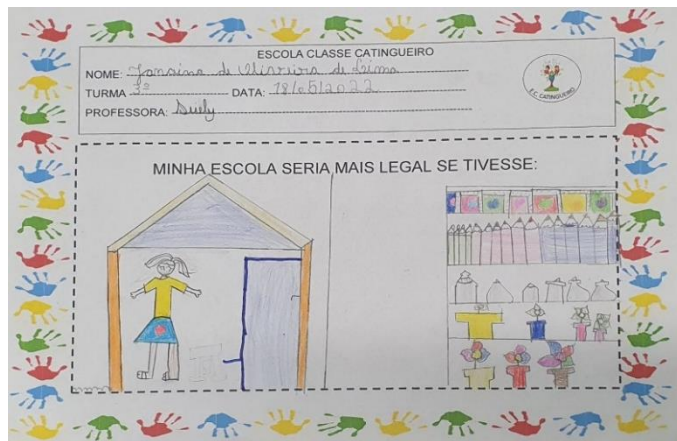 ESCOLA CLASSE CATINGUEIRO
NOME: Janaina de Oliveira de Lima
TURMA 3º DATA: 18/05/2022
PROFESSORA: Suely
E.C. CATINGUEIRO
MINHA ESCOLA SERIA MAIS LEGAL SE TIVESSE: